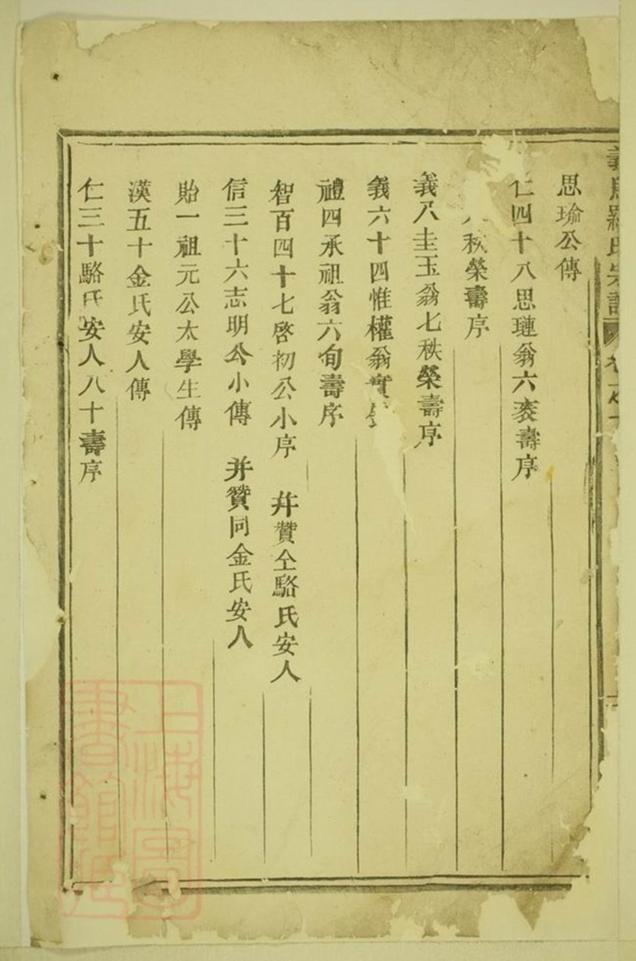 羅氏宗譜
思瑜公傳
仁四十八思璉翁六袠壽序
秩榮壽序
義八圭玉翁七秩榮壽序
義六十四惟權翁實
禮四承祖翁六旬壽序
智百四十七啓初公小序 幷贊仝駱氏安人
信三十六志明公小傳 并贊同金氏安人
貽一祖元公太學生傳
漢五十金氏安人傳
仁三十駱氏安人八十壽序
上海圖書館藏